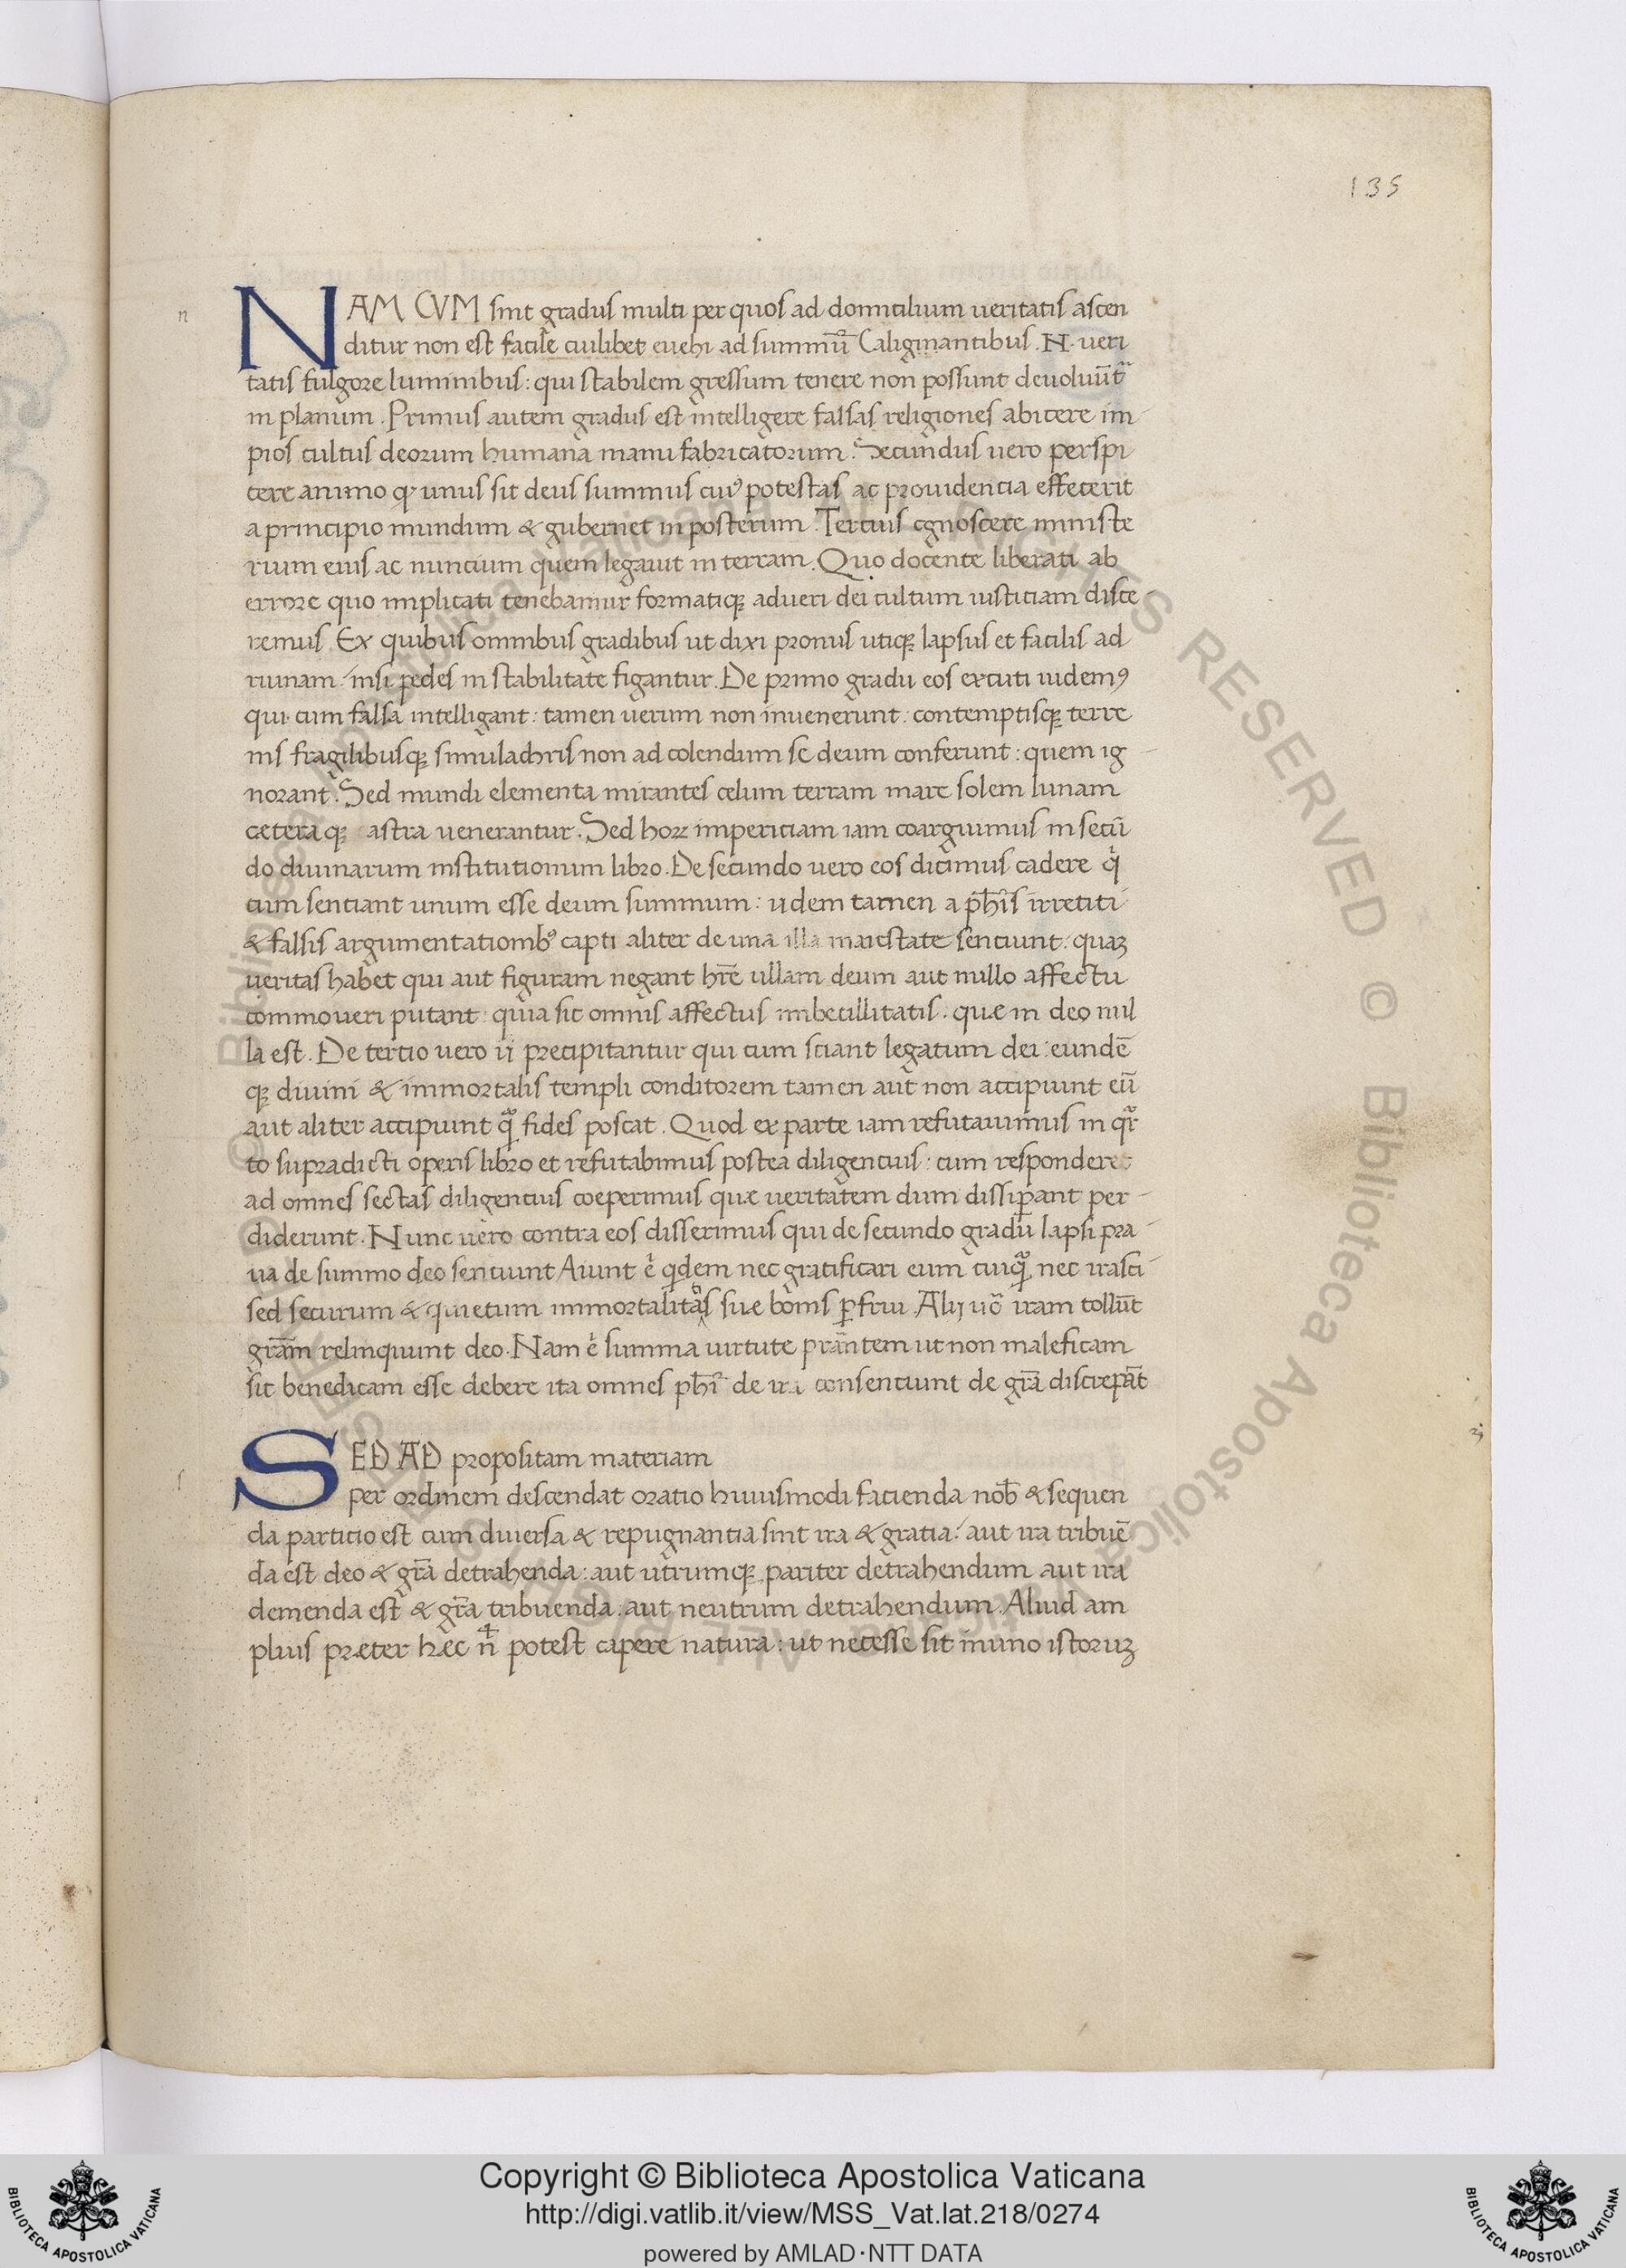 135
n
NAM CVM sint gradus multi per quos ad domicilium ueritatis ascen
ditur non est facile cuilibet euehi ad summū Caliginantibus .N. ueri
tatis fulgore luminibus: qui stabilem gressum tenere non possunt deuoluūt᷑
in planum . Primus autem gradus est intelligere falsas religiones abicere im-
pios cultus deorum humana manu fabricatorum . Secundus uero perspi
cere animo q unus sit deus summus cuiꝰ potestas ac prouidencia effecerit
a principio mundum & gubernet in posterum . Tercius cgnoscere ministe
rium eius ac nuncium quem legauit in terram . Quo docente liberati ab
errore quo implicati tenebamur formatiqꝫ ad ueri dei cultum iusticiam disce-
remus . Ex quibus omnibus gradibus ut dixi pronus utiqꝫ lapsus et facilis ad
ruinam : nisi pedes in stabilitate figantur . De primo gradu eos excuti uidemꝰ
qui cum falsa intelligant : tamen uerum non inuenerunt : contemptisqꝫ terre
nis fragilibusqꝫ simulachris non ad colendum se deum conferunt : quem ig-
norant . Sed mundi elementa mirantes celum terram mare solem lunam
cæteraqꝫ astra uenerantur . Sed hoꝝ impericiam iam coarguimus in secū
do diuinarum institutionum libro . De secundo uero eos dicimus cadere qi
cum senciant unum esse deum summum : iidem tamen a ph̄is irretiti
& falsis argumentationibꝰ capti aliter de una illa maiestate senciunt : quaꝫ
ueritas habet qui aut figuram negant hr̄e ullam deum aut nullo affectu
commoueri putant : quia sit omnis affectus imbecillitatis . quæ in deo nul
la est . De tercio uero ii precipitantur qui cum sciant legatum dei : eundē
qꝫ diuini & immortalis templi conditorem tamen aut non accipiunt eū
aut aliter accipiunt q̃ fides poscat . Quod ex parte iam refutauimus in qr
to supradicti operis libro et refutabimus postea diligencius : cum respondere
ad omnes sectas diligencius coeperimus quæ ueritatem dum dissipant per-
diderunt . Nunc uero contra eos disserimus qui de secundo gradu lapsi pra-
ua de summo deo senciunt Aiunt .n. qidem nec gratificari eum cuiq̃ nec irasci
sed securum & quietum immortalitatis sue bonis ꝑfrui . Alij uo iram tollūt
gr̄am relinquunt deo . Nam summa uirtute pran̄tem ut non maleficam
sit beneficam esse debere ita omnes ph̄i de ira consenciunt de gr̄a discrepāt
s
SED AD propositam materiam
per ordinem descendat oratio huiusmodi facienda nob̄ & sequen
da particio est cum diuersa & repugnantia sint ira & gratia : aut ira tribuē
da est deo & gr̄a detrahenda : aut utrumqꝫ pariter detrahendum aut ira
demenda est & gr̄a tribuenda . aut neutrum detrahendum . Aliud am
plius præter hæc n̄ potest capere natura : ut necesse sit in uno istoruꝫ
© Biblioteca Apostolica Vaticana ALL RIGHTS RESERVED © Biblioteca Apostolica Vaticana ALL RIGHTS RESERVED
Copyright © Biblioteca Apostolica Vaticana
http://digi.vatlib.it/view/MSS_Vat.lat.218/0274
powered by AMLAD·NTT DATA
BIBLIOTECA APOSTOLICA VATICANA
BIBLIOTECA APOSTOLICA VATICANA